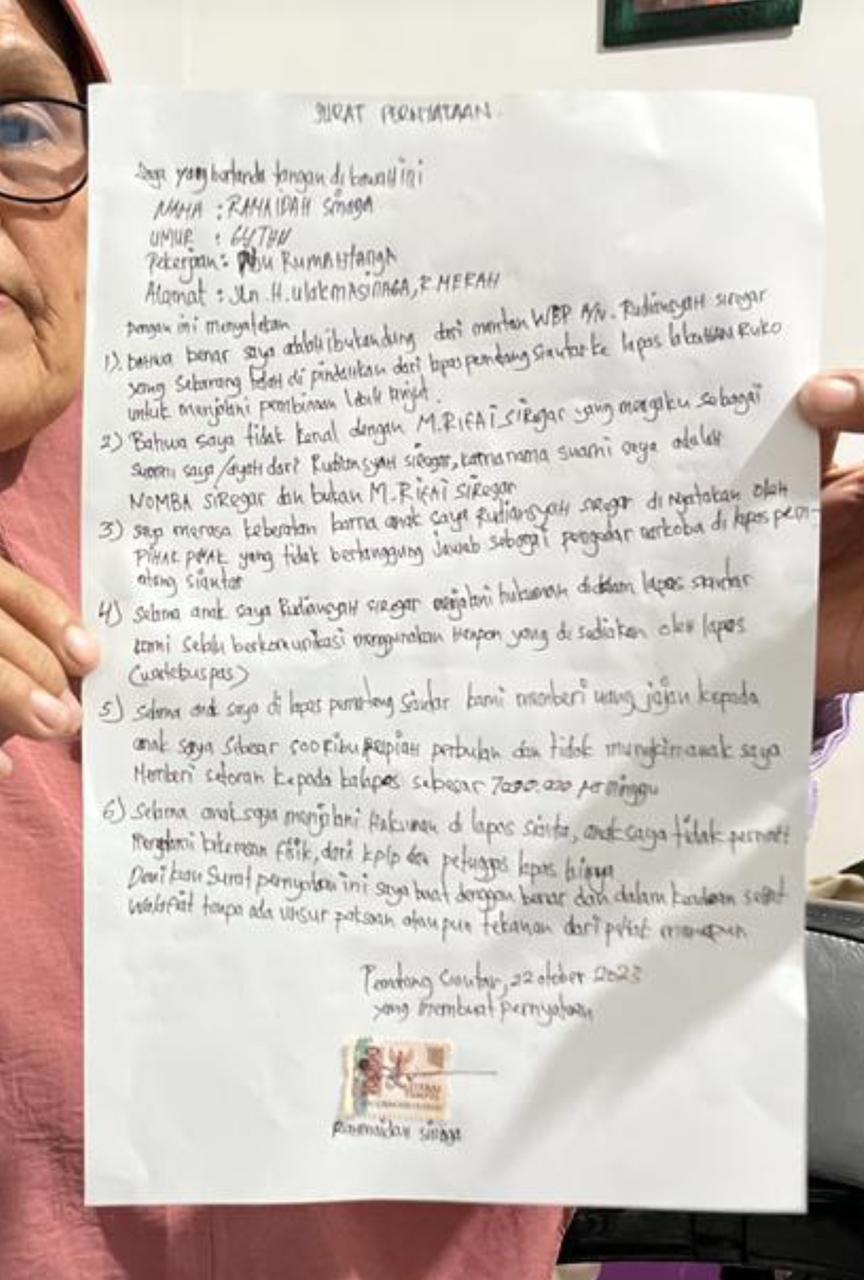 SURAT PERNYATAAN.
Saya yang bertanda tangan di bawah ini
NAMA : RAMAIDAH Sinaga
UMUR : 64 THN
Pekerjaan : Ibu RUMAHtangA
Alamat : Jln. H. ulakmASINAGA, R. MERAH
Dengan ini menyatakan
1). Bahwa benar saya adalah ibu kandung dari mantan WBP A/N. Rudiansyah siregar
yang Sekarang telah di pindahkan dari lapas pematang siantar ke lapas labuhan RUKO
untuk menjalani pembinaan lebih lanjut.
2) Bahwa saya tidak kenal dengan M. RIFAI SIRegar yang mengaku sebagai
Suami saya /ayah dari Rudiansyah siregar, karna nama suami saya adalah
NOMBA SIRegar dan bukan M. RIFAI SIRegar
3) saya merasa keberatan karna anak saya Rudiansyah siregar di nyatakan oleh
PIHAK PIHAK yang tidak bertanggung Jawab sebagai pengedar narkoba di lapas pem-
atang siantar
4) Selama anak saya Rudiansyah siregar menjalani hukuman didalam lapas siantar
kami selalu berkomunikasi menggunakan Henpon yang di sediakan oleh lapas
(wartelsuspas)
5) Selama anak saya di lapas pematang siantar kami memberi uang jajan kepada
anak saya sebesar 500 Ribu Rupiah perbulan dan tidak mungkin anak saya
Memberi setoran kepada kalapas sebesar 7000.000 per minggu
6) Selama anak saya menjalani Hukuman di lapas siantar, anak saya tidak pernah
Mengalami kekerasan fisik, dari kplp dan petugas lapas lainya
Demikian Surat pernyataan ini saya buat dengan benar dan dalam keadaan sehat
walafiat tanpa ada unsur paksaan ataupun tekanan dari pihak manapun
Pematang Siantar, 22 otober 2023
yang membuat pernyataan
METERAI
TEMPEL
Ramaidah sinaga